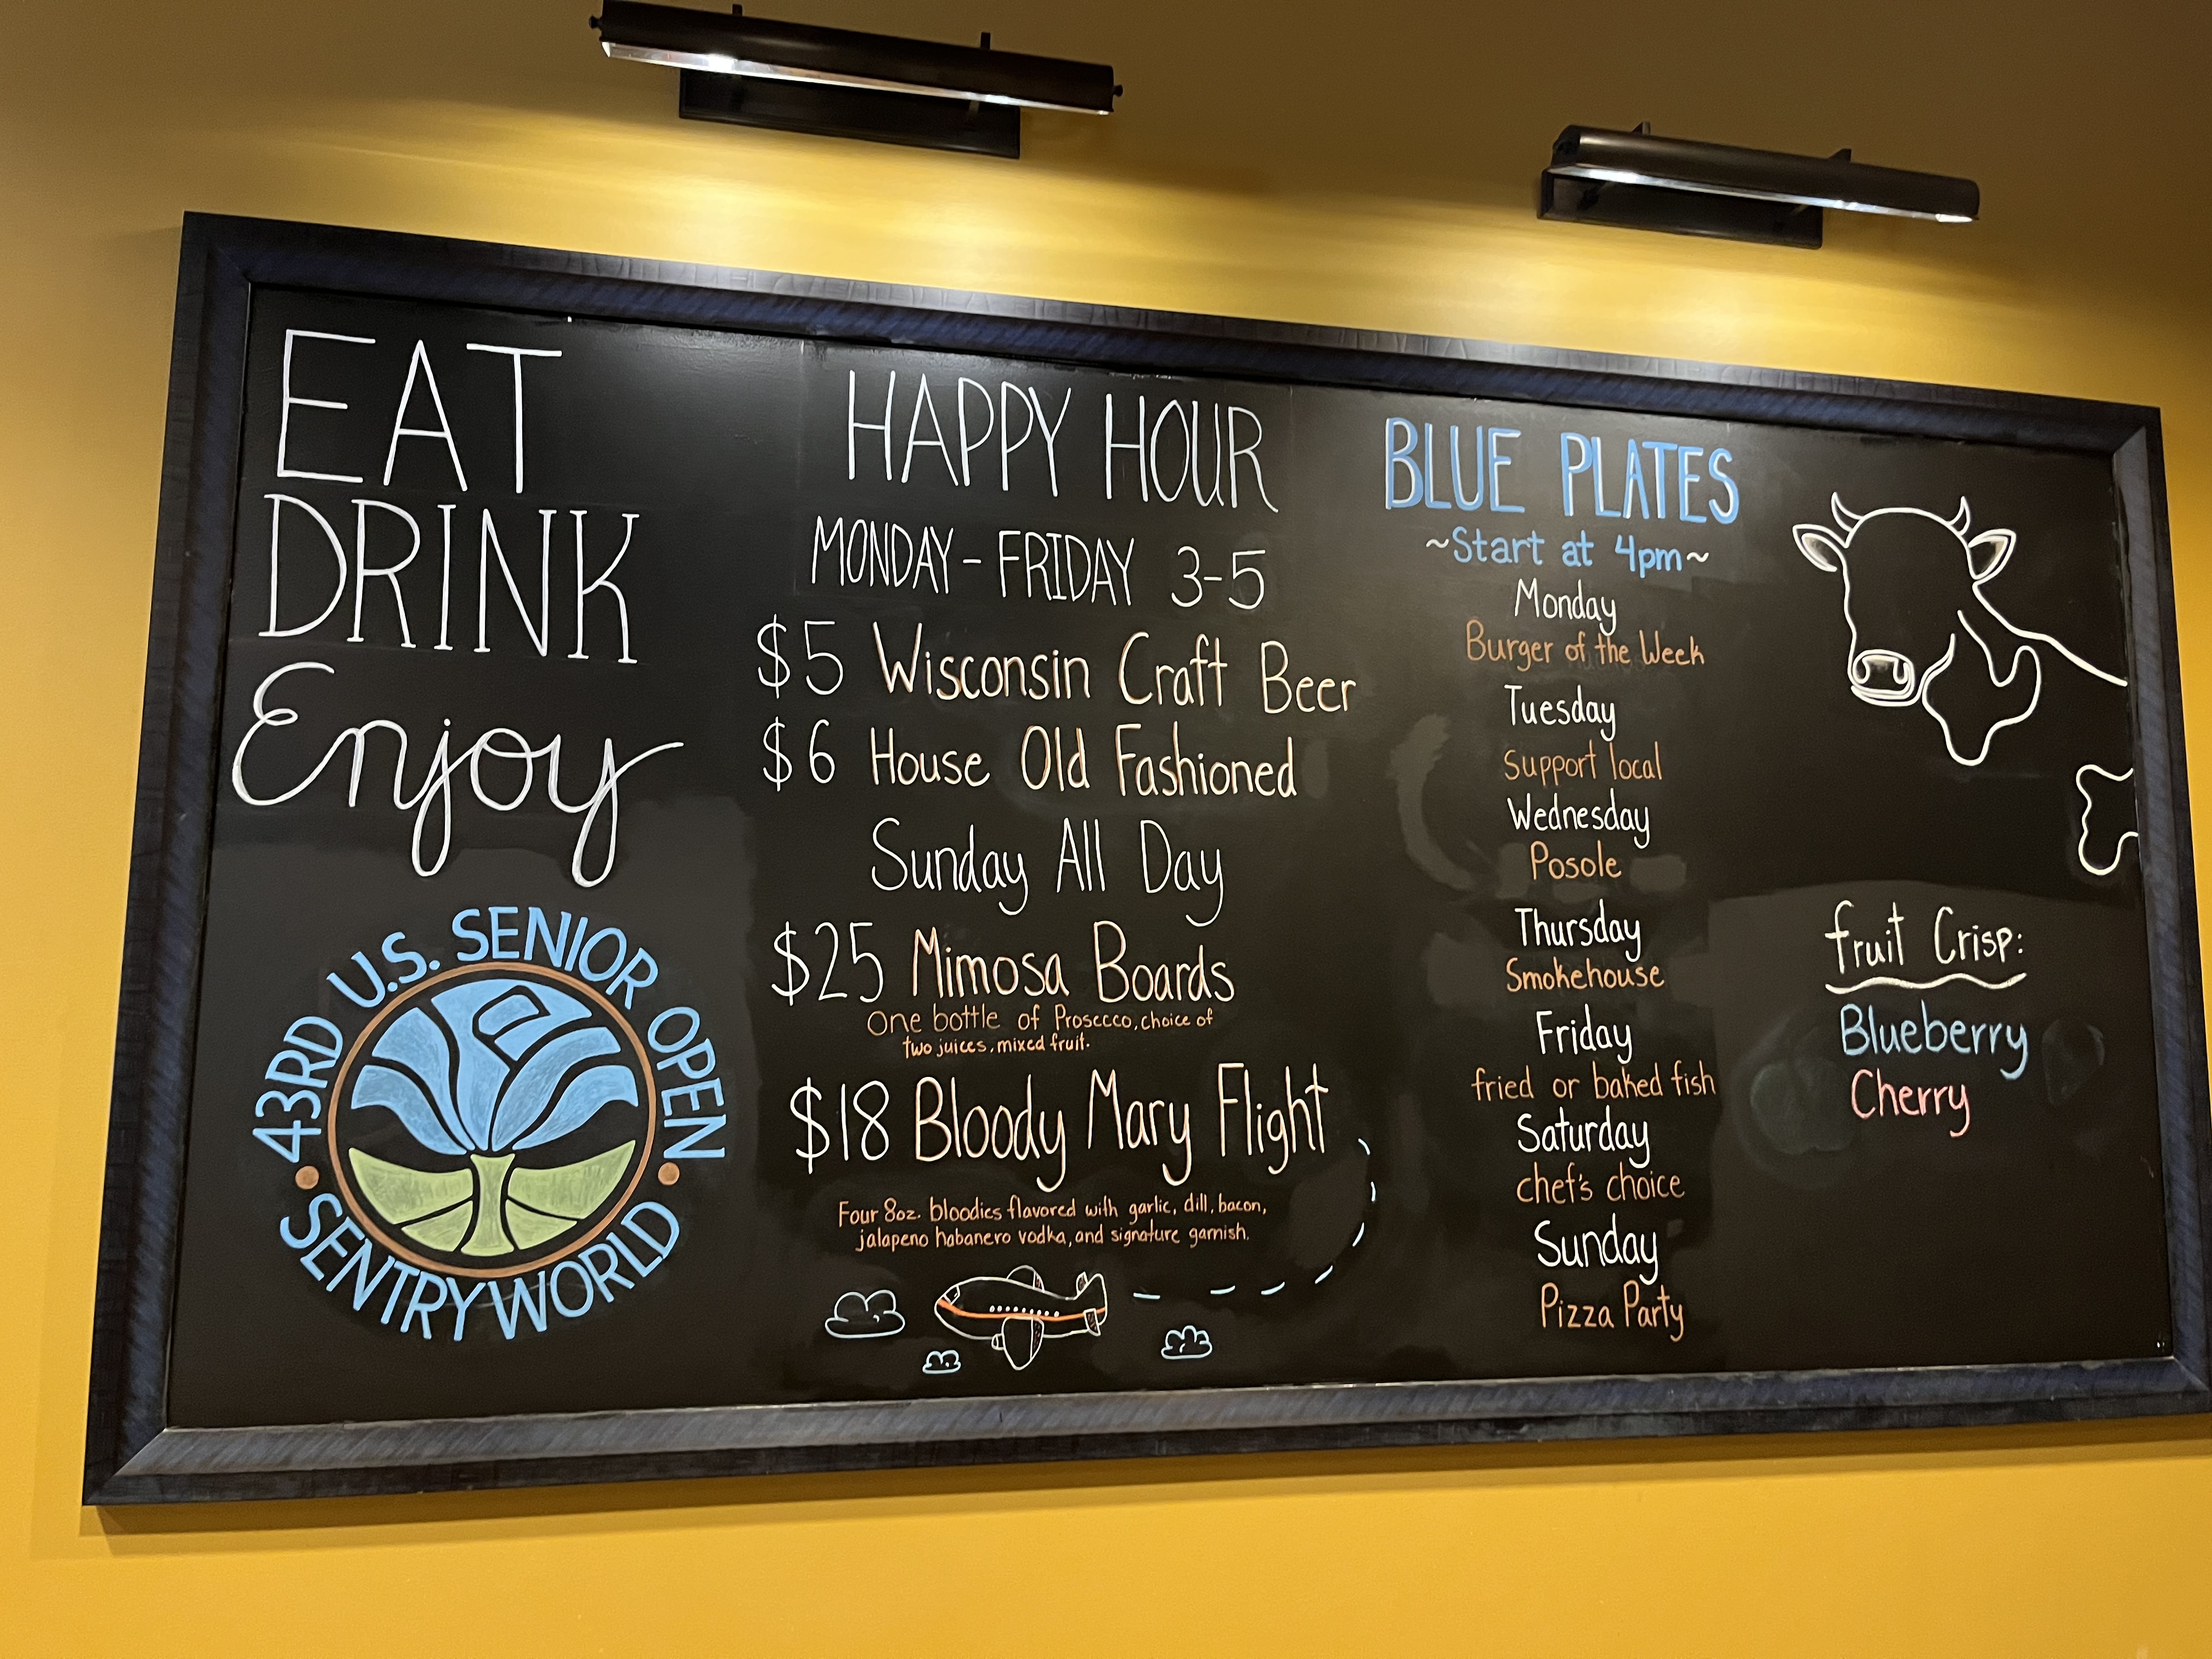 EAT
DRINK
Enjoy
43RD U.S. SENIOR OPEN
SENTRYWORLD
HAPPY HOUR
MONDAY - FRIDAY 3-5
$5 Wisconsin Craft Beer
$6 House Old Fashioned
Sunday All Day
$25 Mimosa Boards
One bottle of Prosecco, choice of
two juices, mixed fruit.
$18 Bloody Mary Flight
Four 8oz. bloodies flavored with garlic, dill, bacon,
jalapeno habanero vodka, and signature garnish.
BLUE PLATES
~Start at 4pm~
Monday
Burger of the Week
Tuesday
Support local
Wednesday
Posole
Thursday
Smokehouse
Friday
fried or baked fish
Saturday
chef's choice
Sunday
Pizza Party
fruit Crisp:
Blueberry
Cherry